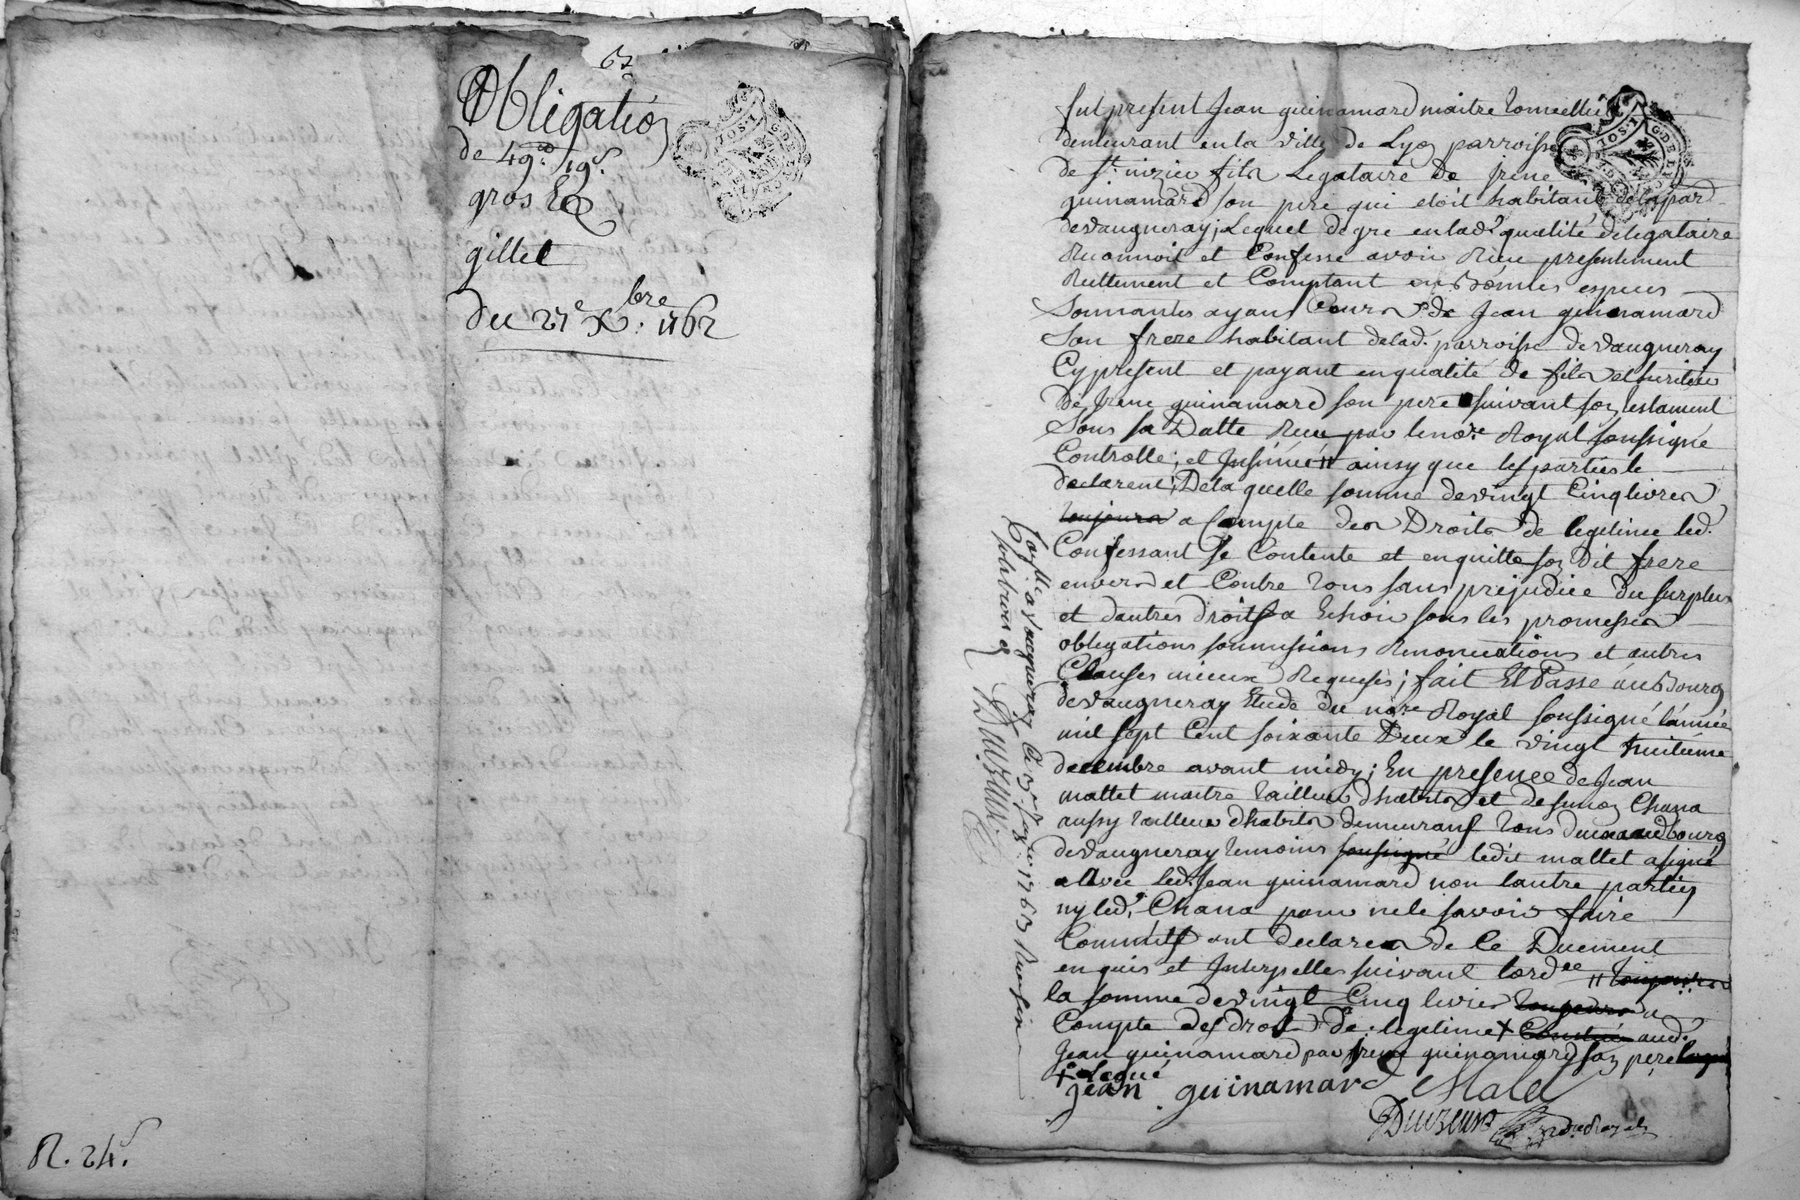 67
Obligation
de 49# 19s
gros &
gillet
du 27e Xbre: 1762
R. 24s.
fut present Jean guinamard maitre tonnellie
demeurant en la ville de Lyon parroisse
de St. nizier fils Legataire de Irene
guinamard son pere qui etoit habitant de la par
de vaugneray; Lequel de gre en lad. qualité de legataire
Reconnoit et Confesse avoir Reeu presentement
Reellement et Comptant en Bonnes especes
Sonnantes ayant Cours de Jean guinamard
Son frere habitant de lad. parroisse de vaugneray
Cy present et payant en qualité de fils et heritier
De Irene guinamard son pere suivant son testament
Sous sa Datte Receu par le nore. Royal soussigné
Controlle; et Insinué # ainsy que les parties le
declarent; De la quelle somme de vingt Cinq livres
toujours a Compte des Droits de legitime led.
Confessant Se Contente et en quitte son Dit frere
envers et Contre tous sans prejudice du surplus
et dautres droits a Echoir sous les promesses
obligations soumissions Renonciations et autres
Clauses mieux Requises; fait Et Passé au Bourg
de vaugneray Etude du nore Royal soussigné lannée
mil sept Cent soixante Deux le vingt huitieme
decembre avant midy; En presence de Jean
mattet maitre tailleur dhabits et de simon Chana
aussy tailleur dhabits demeurant tous deux aud bourg
de vaugneray temoins soussigné ledit mattet a signé
avec led. Jean guinamard non lautre parties
ny led. Chana pour ne le savoir faire
Comme ils ont declarer de Ce Duement
enquis et Interpelles suivant lordce # toujours
la somme de vingt Cinq livres toujours a
Compte des droits de legitime + aud.
Jean guinamard par Irene guinamard son pere
+ Legué
jean guinamard Matet
Duizeux nore Royal
Conlle a vaugneray Ce 3e Janv. 1763 Receu